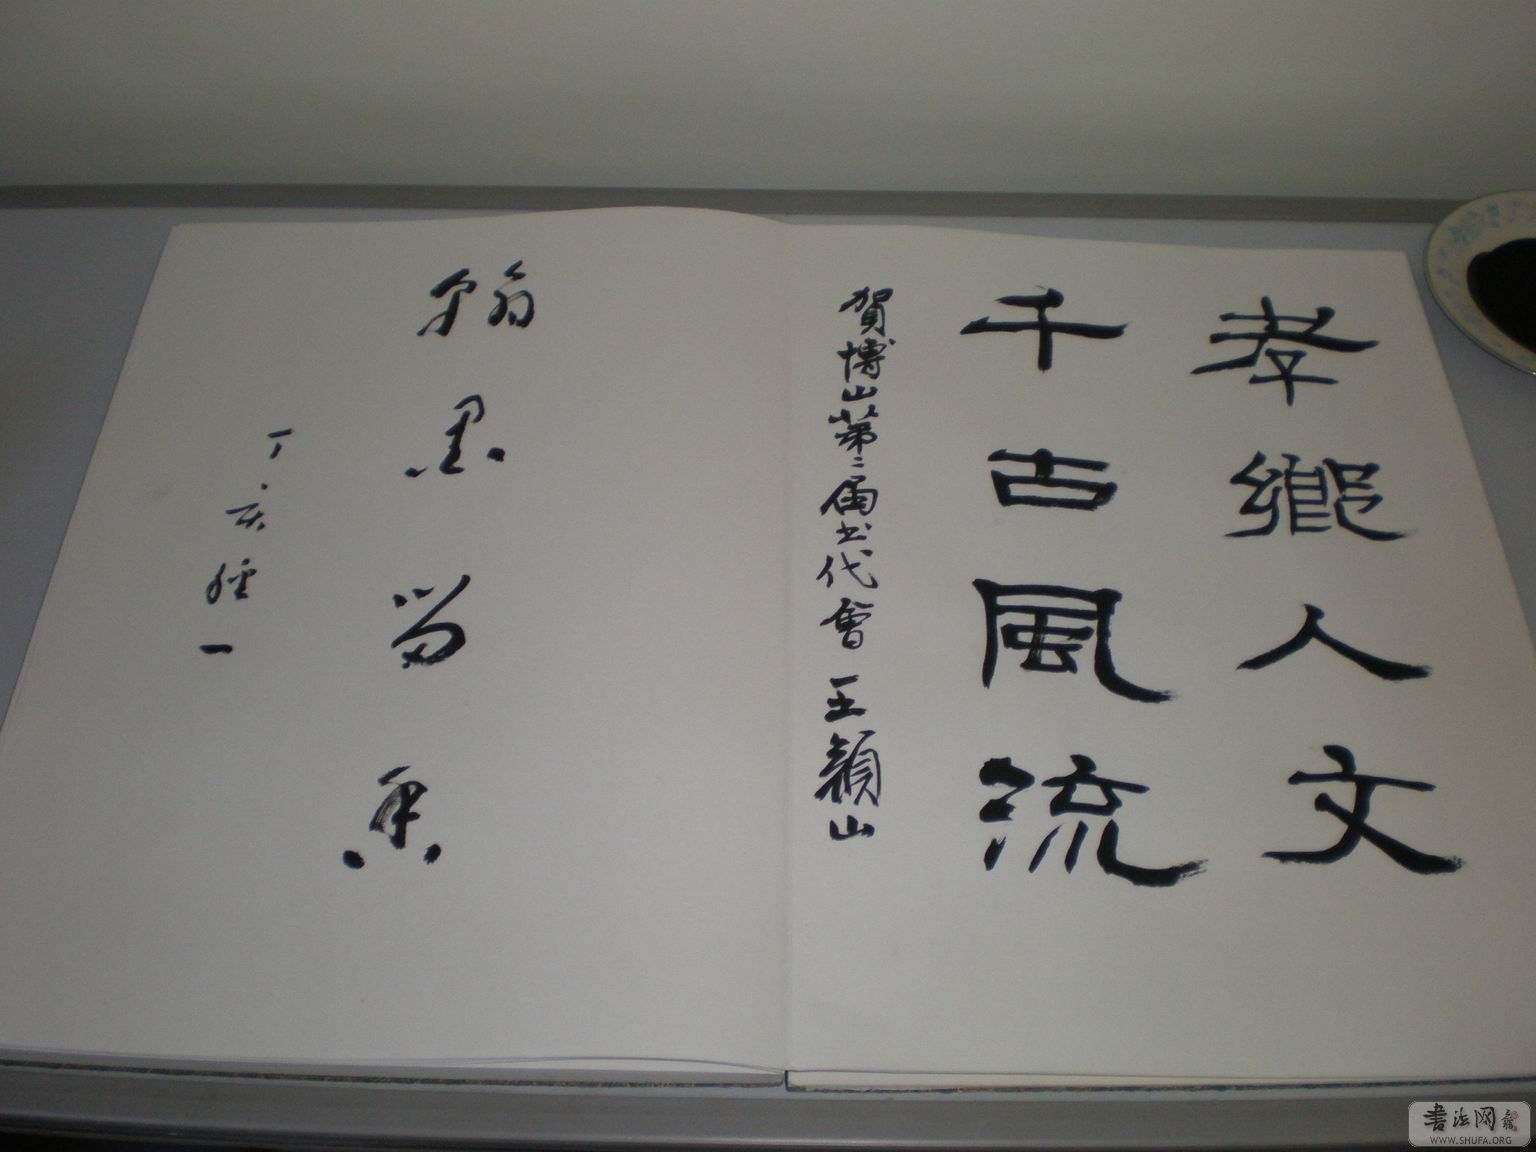 孝鄉人文
千古風流
賀博山第二届书代會 王穎山
翰墨留香
丁亥 一
书法网
WWW.SHUFA.ORG